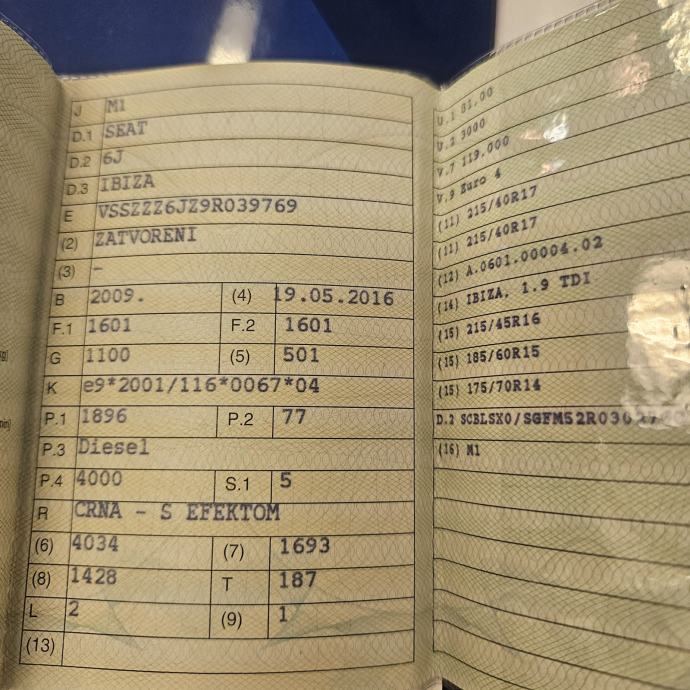 J M1
D.1 SEAT
D.2 6J
D.3 IBIZA
E VSSZZZ6JZ9R039769
(2) ZATVORENI
(3) -
B 2009. (4) 19.05.2016
F.1 1601 F.2 1601
G 1100 (5) 501
K e9*2001/116*0067*04
P.1 1896 P.2 77
P.3 Diesel
P.4 4000 S.1 5
R CRNA - S EFEKTOM
(6) 4034 (7) 1693
(8) 1428 T 187
L 2 (9) 1
(13)
U.1 81.00
U.2 3000
V.7 119.000
V.9 Euro 4
(11) 215/40R17
(11) 215/40R17
(12) A.0601.00004.02
(14) IBIZA, 1.9 TDI
(15) 215/45R16
(15) 185/60R15
(15) 175/70R14
D.2
(16) M1